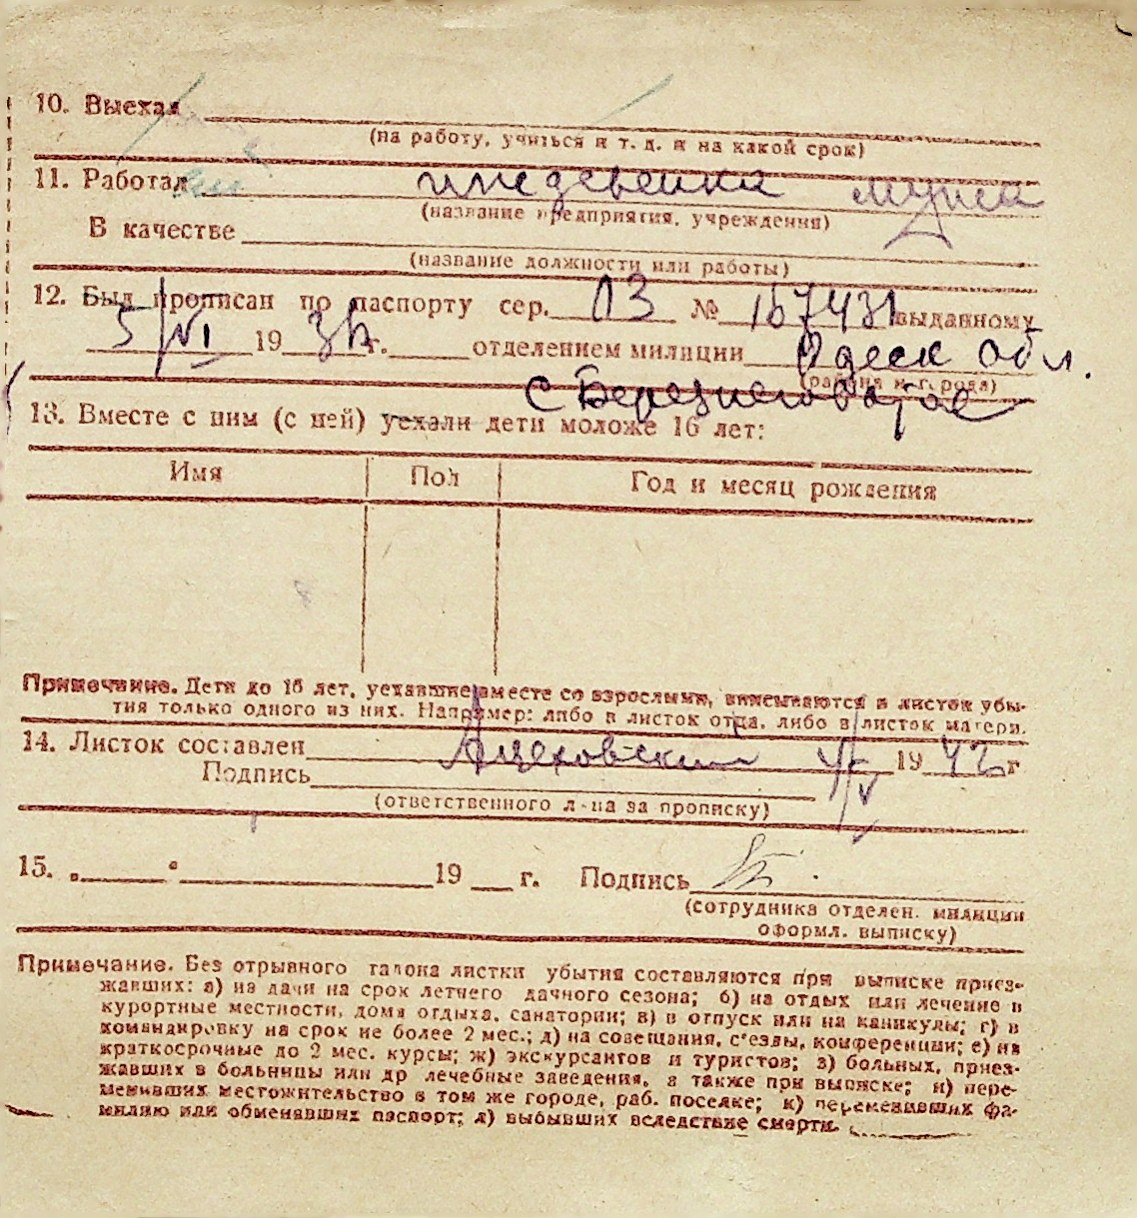 10. Выехал
(на работу, учиться и т. д. и на какой срок)
11. Работал иждевенка мужа
(название предприятия, учреждения)
В качестве
(название должности или работы)
12. Был прописан по паспорту сер. ПЗ № 167431 выданному
5/VI 19 г. отделением милиции Одесск обл.
(района и города)
с Березнеговатое
13. Вместе с ним (с ней) уехали дети моложе 16 лет:
Имя Пол Год и месяц рождения
Примечание. Дети до 16 лет, уехавшие вместе со взрослыми, вписываются в листок убы-
тия только одного из них. Например: либо в листок отца, либо в листок матери.
14. Листок составлен 4/V 1942 г
Подпись
(ответственного л-ца за прописку)
15. „ “ 19 г. Подпись
(сотрудника отделен. милиции
оформл. выписку)
Примечание. Без отрывного талона листки убытия составляются при выписке приез-
жавших: а) из дачи на срок летнего дачного сезона; б) на отдых или лечение в
курортные местности, дома отдыха, санатории; в) в отпуск или на каникулы; г) в
командировку на срок не более 2 мес.; д) на совещания, с'езды, конференции; е) на
краткосрочные до 2 мес. курсы; ж) экскурсантов и туристов; з) больных, приез-
жавших в больницы или др лечебные заведения, а также при выписке; и) пере-
менивших местожительство в том же городе, раб. поселке; к) переменивших фа-
милию или обменявших паспорт; л) выбывших вследствие смерти.